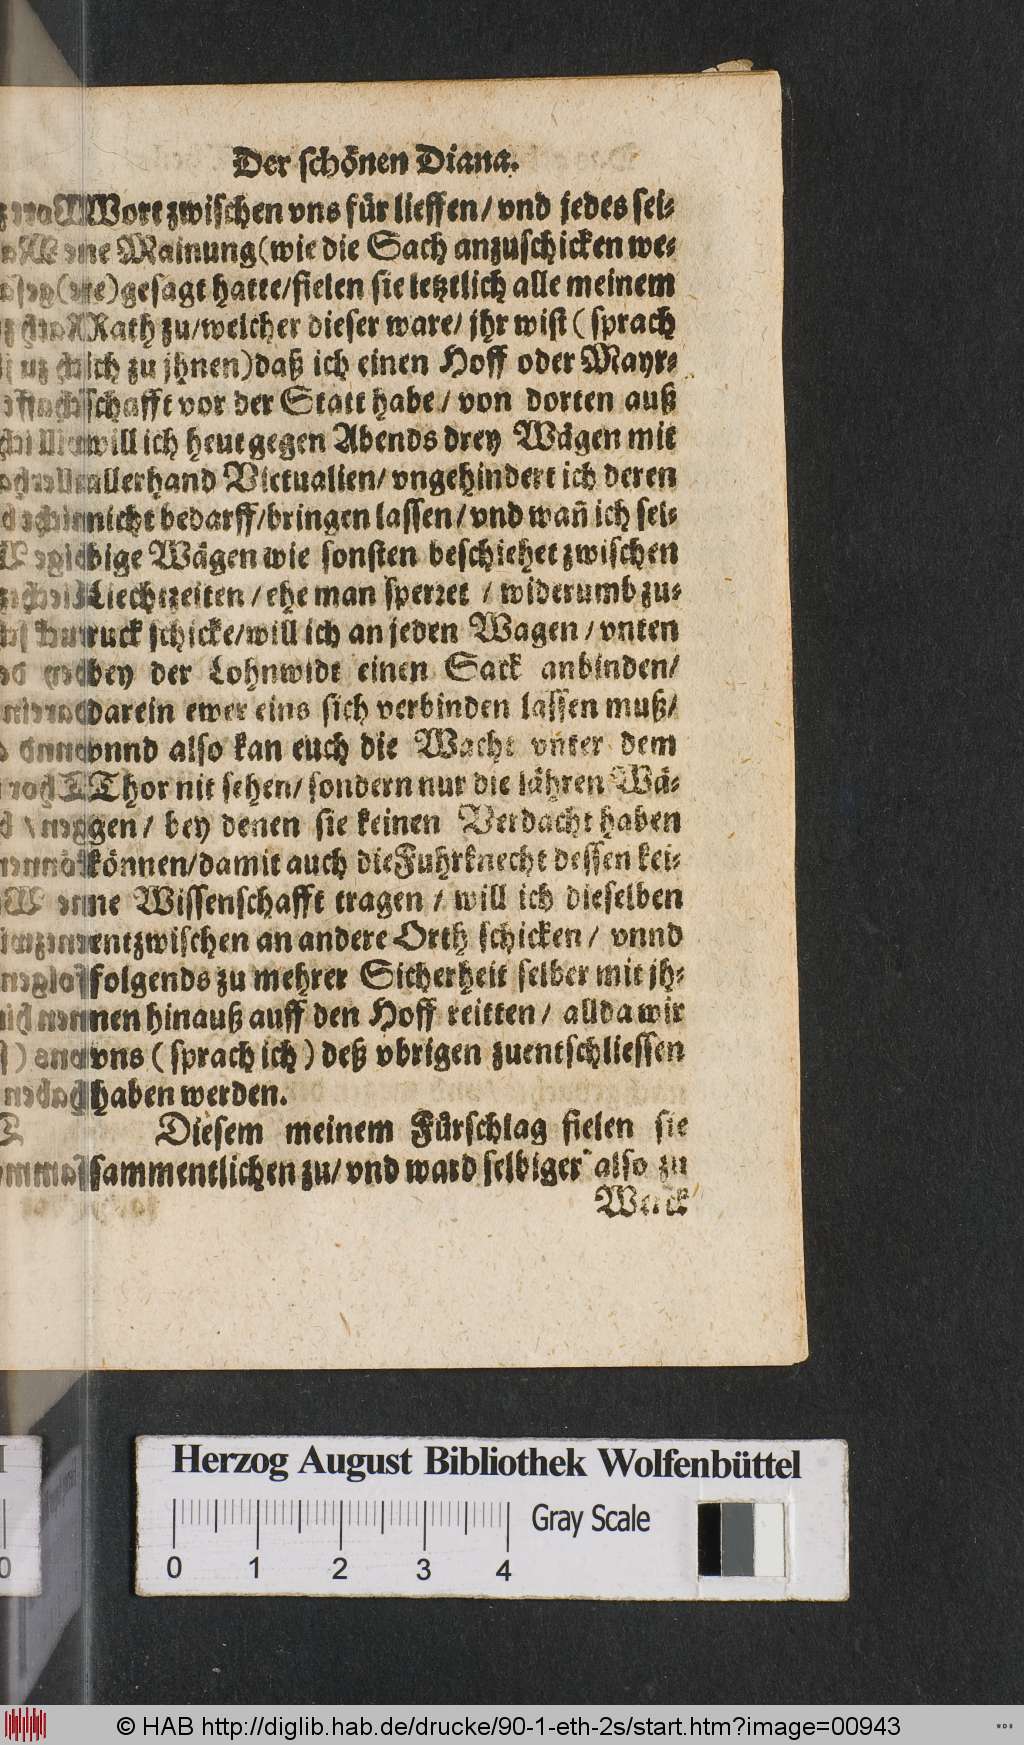 Der schönen Diana.
Wort zwischen vns für lieffen/ vnd jedes sei-
ne Mainung (wie die Sach anzuschicken we-
re) gesagt hatte/ fielen sie letztlich alle meinem
Rath zu/ welcher dieser ware/ jhr wist ( sprach
ich zu jhnen) daß ich einen Hoff oder Mayr-
schafft vor der Statt habe/ von dorten auß
will ich heut gegen Abends drey Wägen mit
allerhand Victualien/ vngehindert ich deren
nicht bedarff/ bringen lassen/ vnd wañ ich sel-
bige Wägen wie sonsten beschiehet zwischen
Liechtzeiten/ ehe man sperret / widerumb zu-
ruck schicke/ will ich an jeden Wagen/ vnten
bey der Lohnwidt einen Sack anbinden/
darein ewer eins sich verbinden lassen muß/
vnnd also kan euch die Wacht vnter dem
Thor nit sehen/ sondern nur die lähren Wä-
gen/ bey denen sie keinen Verdacht haben
können/ damit auch die Fuhrknecht dessen kei-
ne Wissenschafft tragen / will ich dieselben
entzwischen an andere Orth schicken/ vnnd
folgends zu mehrer Sicherheit selber mit jh-
nen hinauß auff den Hoff reitten/ allda wir
vns ( sprach ich ) deß vbrigen zuentschliessen
haben werden.
Diesem meinem Fürschlag fielen sie
sammentlichen zu/ vnd ward selbiger also zu
Werck
Herzog August Bibliothek Wolfenbüttel
Gray Scale
0 1 2 3 4
© HAB http://diglib.hab.de/drucke/90-1-eth-2s/start.htm?image=00943